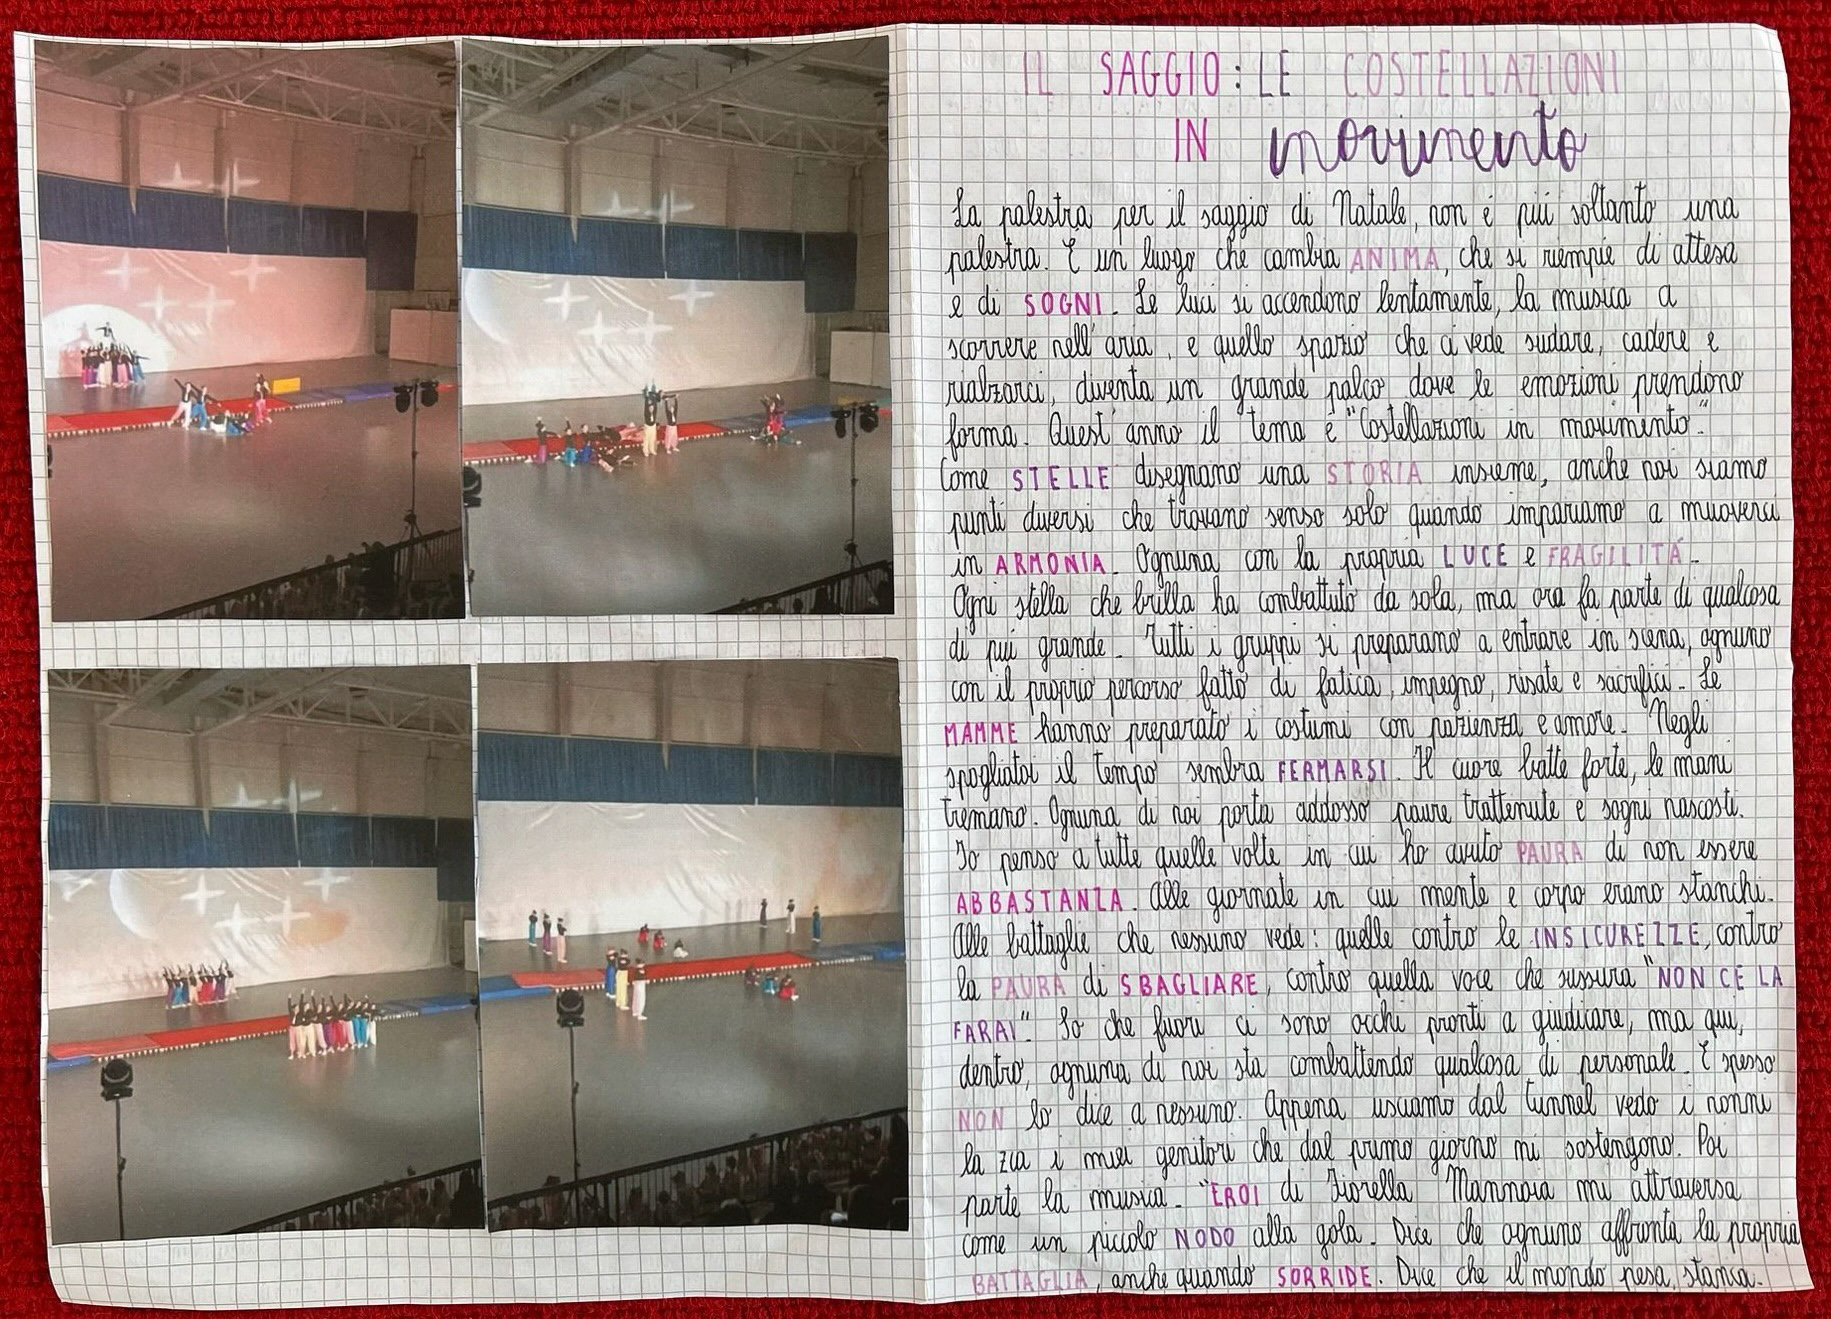 IL SAGGIO: LE COSTELLAZIONI
IN movimento
La palestra per il saggio di Natale, non é piú soltanto una
palestra. É un luogo che cambia ANIMA, che si riempie di attesa
e di SOGNI. Le luci si accendono lentamente, la musica a
scorrere nell'aria, e quello spazio che ci vede sudare, cadere e
rialzarci, diventa un grande palco dove le emozioni prendono
forma. Quest'anno il tema é "Costellazioni in movimento".
Come STELLE disegnano una STORIA insieme, anche noi siamo
punti diversi che trovano senso solo quando impariamo a muoverci
in ARMONIA. Ognuna con la propria LUCE e FRAGILITÁ.
Ogni stella che brilla ha combattuto da sola, ma ora fa parte di qualcosa
di piú grande. Tutti i gruppi si preparano a entrare in scena, ognuno
con il proprio percorso fatto di fatica, impegno, risate e sacrifici. Le
MAMME hanno preparato i costumi con pazienza e amore. Negli
spogliatoi il tempo sembra FERMARSI. Il cuore batte forte, le mani
tremano. Ognuna di noi porta addosso paure trattenute e sogni nascosti.
Io penso a tutte quelle volte in cui ho avuto PAURA di non essere
ABBASTANZA. Alle giornate in cui mente e corpo erano stanchi.
Alle battaglie che nessuno vede: quelle contro le INSICUREZZE, contro
la PAURA di SBAGLIARE, contro quella voce che sussura "NON CE LA
FARAI". So che fuori ci sono occhi pronti a giudicare, ma qui,
dentro, ognuna di noi sta combattendo qualcosa di personale. E spesso
NON lo dice a nessuno. Appena usciamo dal tunnel vedo i nonni
la zia i miei genitori che dal primo giorno mi sostengono. Poi
parte la musica. "EROI di Fiorella Mannoia mi attraversa
come un piccolo NODO alla gola. Dice che ognuno affronta la propria
BATTAGLIA, anche quando SORRIDE. Dice che il mondo pesa, stanca.